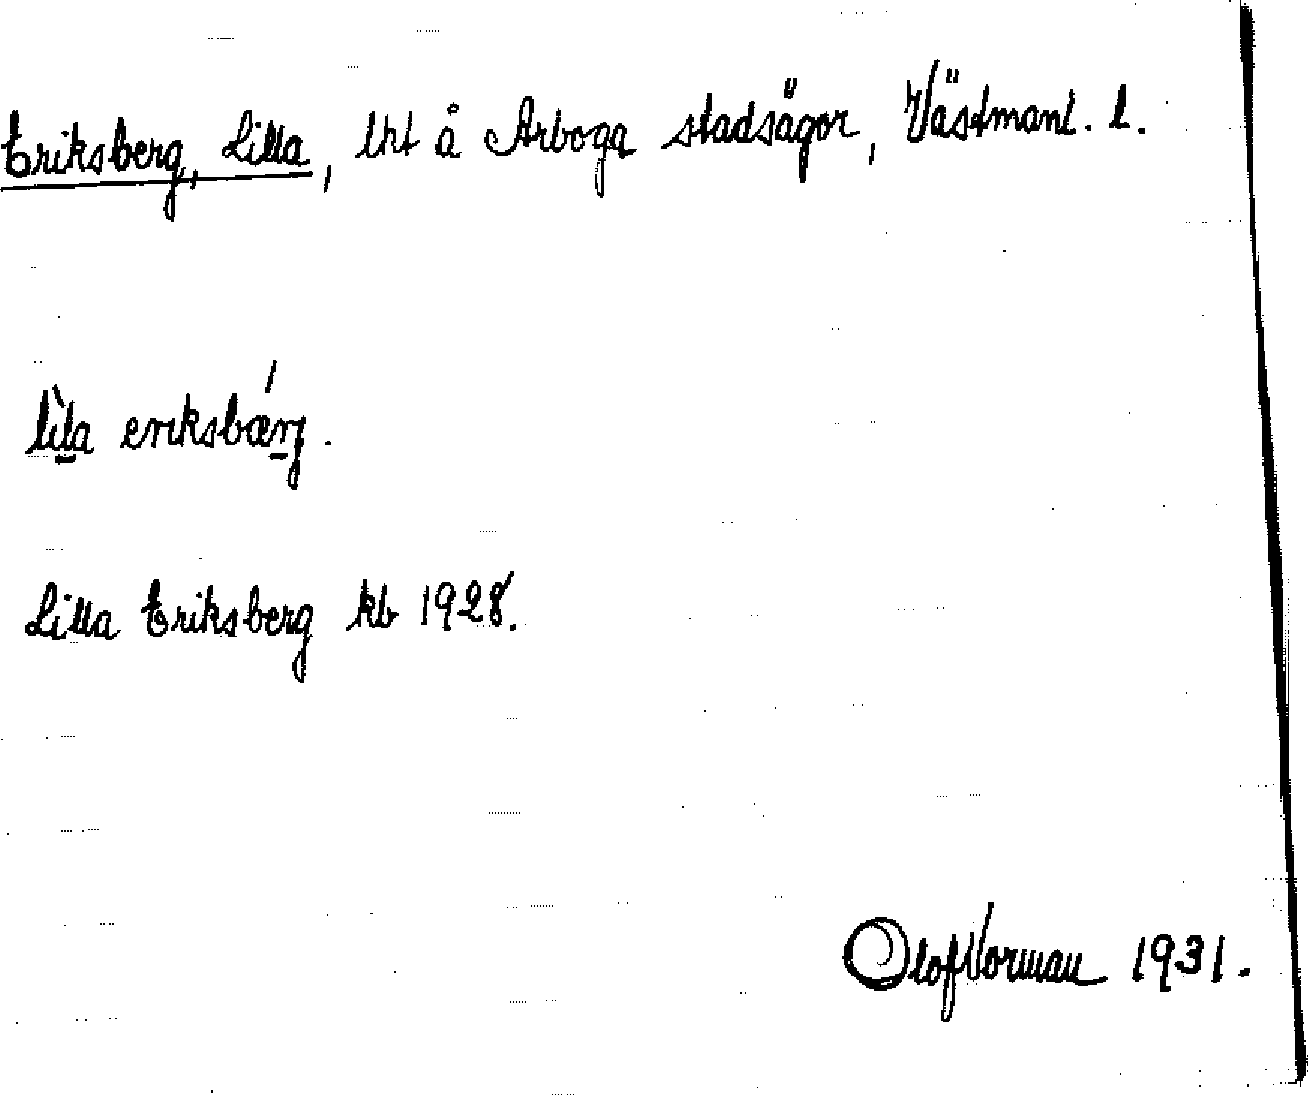 Eriksberg, Lilla, lht å Arboga stadsägor, Västmanl. l.
lìla eriksbærj.
Lilla Eriksberg kb 1928.
Olof Vorman 1931.